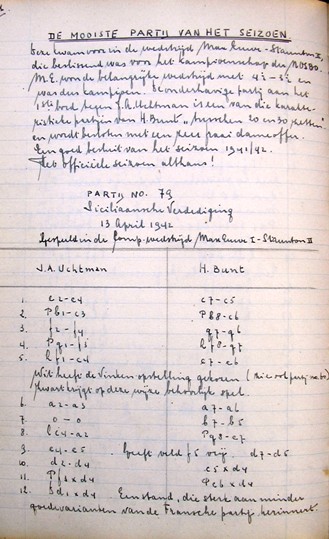 DE MOOISTE PARTIJ VAN HET SEIZOEN
Deze kwam voor in de wedstrijd Max Euwe - Staunton II,
die beslissend was voor het kampioenschap der NOSBO.
M.E. won de belangrijke wedstrijd met 4½ - 3½ en
was dus kampioen. De onderhavige partij aan het
1ste bord tegen J.A. Uchtman is een van die karakte-
ristieke partijen van H. Bunt "tusschen 20 en 30 zetten"
en wordt besloten met een zeer fraai dameoffer.
Een goed besluit van het seizoen 1941/42.
Het officiële seizoen althans!
PARTIJ NO. 79
Siciliaansche Verdediging
13 April 1942
Gespeeld in de Comp. wedstrijd Max Euwe I - Staunton II
J.A. Uchtman H. Bunt
1. e2-e4 c7-c5
2. Pb1-c3 Pb8-c6
3. f2-f4 g7-g6
4. Pg1-f3 Lf8-g7
5. Lf1-c4 e7-e6
Wit heeft de opstelling gekozen (zie ook partij no.
Zwart krijgt op deze wijze behoorlijk spel.
6. a2-a3 a7-a6
7. 0-0 b7-b5
8. Lc4-a2 Pg8-e7
9. e4-e5 Geeft veld f5 vrij. d7-d5
10. d2-d4 c5xd4
11. Pf3xd4 Pc6xd4
12. Dd1xd4 Een stand, die sterk aan minder
goede varianten van de Fransche partij herinnert.